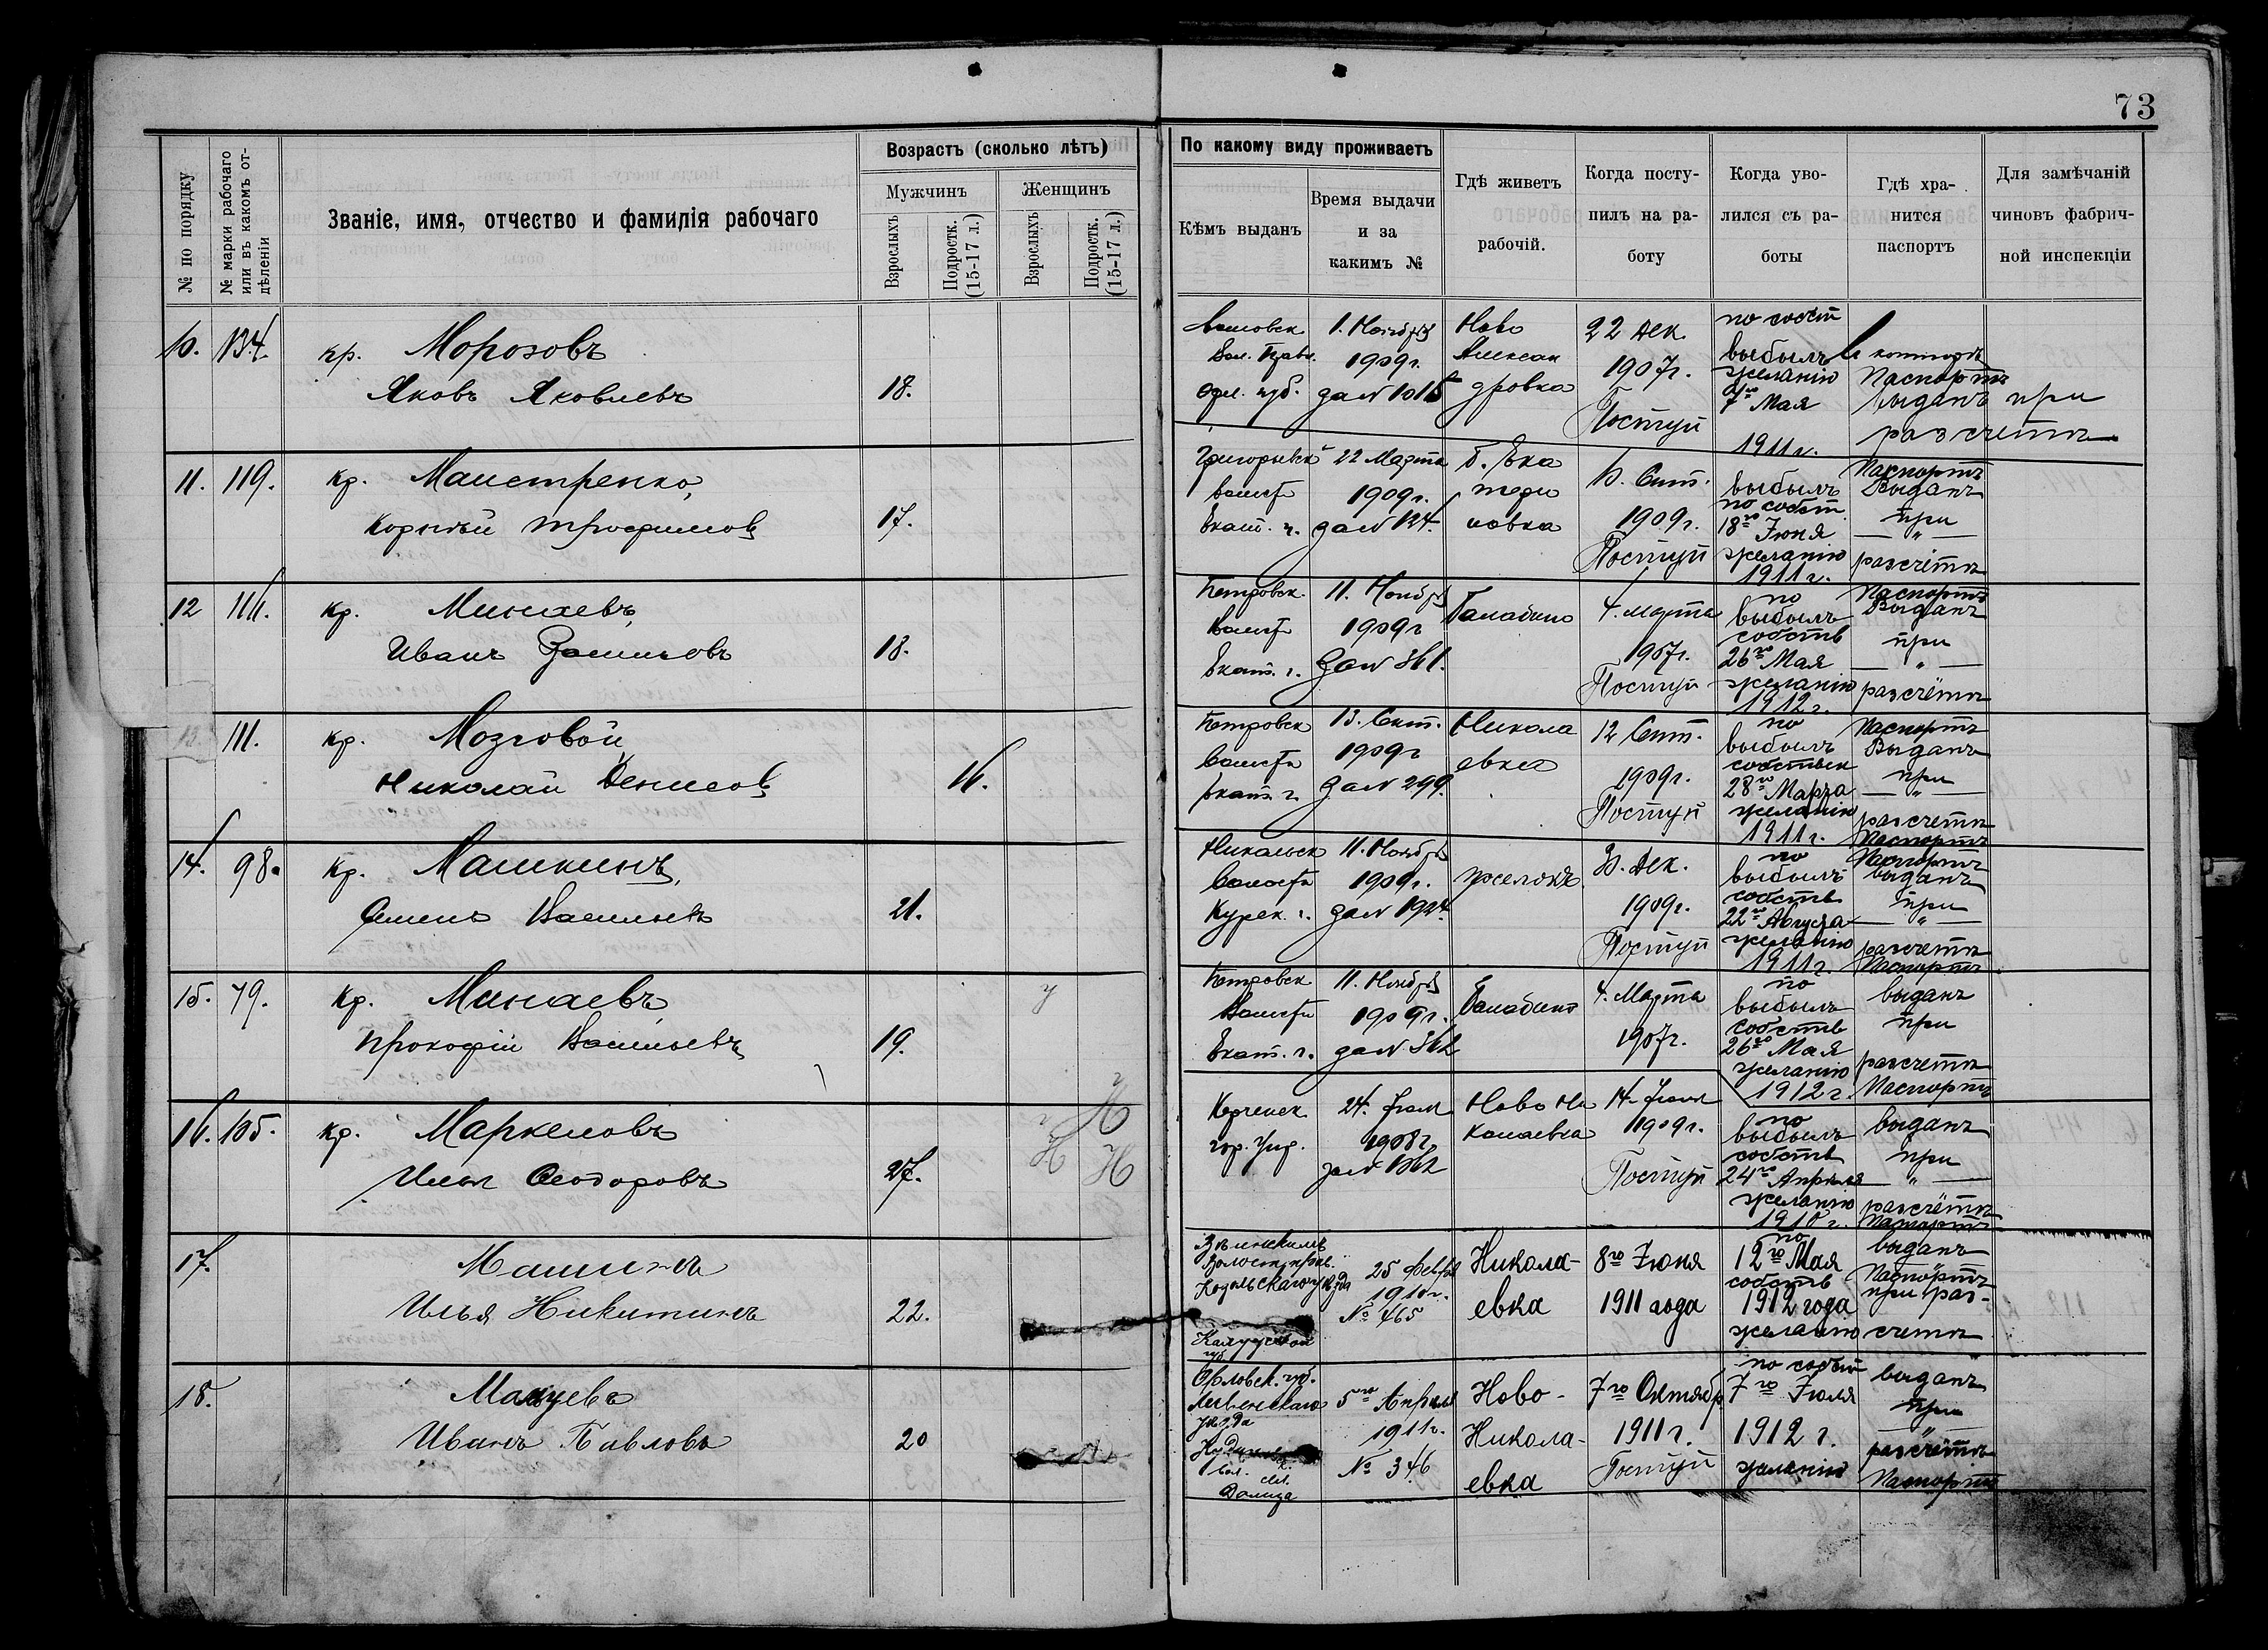 73
№ по порядку
№ марки рабочаго или въ какомъ отдѣленіи
Званіе, имя, отчество и фамилія рабочаго
Возрастъ (сколько лѣтъ)
Мужчинъ
Женщинъ
Взрослыхъ
Подростк. (15-17 л.)
Взрослыхъ
Подростк. (15-17 л.)
По какому виду проживаетъ
Кѣмъ выданъ
Время выдачи
и за
какимъ №
Гдѣ живетъ
рабочій.
Когда посту-
пилъ на ра-
боту
Когда уво-
лился съ ра-
боты
Гдѣ хра-
нится
паспортъ
Для замѣчаній
чиновъ фабрич-
ной инспекціи
10. 134. кр. Морозовъ
Яковъ Яковлевъ 18.
Вол. Прав.
губ.
1. Ноября
1909г.
за № 1015
Ново
Алексан
дровка
22 Дек.
1907г.
Поступ
по собст
выбылъ
желанію
7го Мая
1911г.
конторѣ
Паспортъ
выданъ при
разсчетъ
11. 119. кр. Маистренко,
Корнѣй Трофимовъ 17.
Григорьевск
волости
Екат. г.
22 Марта
1909г.
за № 124.
б. Ека
тери
новка
10. Сент.
1909г.
Поступ
выбылъ
по собст
18го Іюня
желанію
1911г.
Паспортъ
Выданъ
при
— " —
разсчётъ
12 116. кр. Минаевъ,
Иванъ 18.
Петровск.
волости
Екат. г.
11. Ноября
1909г
за № 361.
Балабино
4. Марта
1907г.
Поступ
по
выбылъ
собств
26го Мая
желанію
1912г.
Паспортъ
Выданъ
при
— " —
разсчётъ
13. 111. кр. Мозговой
Николай Денисовъ 16.
Петровск
волости
Екат. г.
13. Сент.
1909г
за № 299.
Никола
евка
12 Сент.
1909г.
Поступ
по
выбылъ
28го Марта
желанію
1911г.
Паспортъ
Выданъ
при
— " —
разсчетъ
Паспортъ
14. 98. кр. Машкинъ,
Семенъ Васильевъ 21.
Никольск
волости
Курск. г.
11. Ноября
1909г.
за № 1924.
10. Дек.
1909г.
Поступ
по
выбылъ
собств
22го Августа
желанію
1911г.
Паспортъ
выданъ
при
— " —
разсчетъ
Паспортъ
15. 79. кр. Минаевъ
Прокофій Васильевъ 19.
Петровск
волости
Екат. г.
11. Ноября
1909г.
за № 362
Балабино
4. Марта
1907г.
по
выбылъ
собств
26го Мая
желанію
1912г.
выданъ
при
разсчетъ
Паспортъ
16. 105. кр. Маркеловъ
Илья Феодоровъ 27.
гор. Упр.
24.
1908г.
за № 1362
Ново Ни
колаевка
14.
1909г.
Поступ
по
выбылъ
собств
24го Апрѣля
желанію
1910г.
выданъ
при
— " —
разсчётъ
Паспортъ
17. Машинъ
Илья Никитинъ 22.
Козельскаго уѣзда
Калужской
губ
25 Февр
1910г.
№ 465
Никола-
евка
8го Іюня
1911 года
по
12го Мая
собств
1912 года
желанію
выданъ
Паспортъ
при раз-
счетъ
18. Мануевъ
Иванъ Павловъ 20
Орловск. губ.
Ливенскаго
уѣзда
вол.
5го Апрѣля
1911г.
№ 346
Ново-
Никола-
евка
7го Октябр
1911г.
Поступ
по собст
7го Іюля
1912г.
желанію
выданъ
при
разсчётъ
Паспортъ